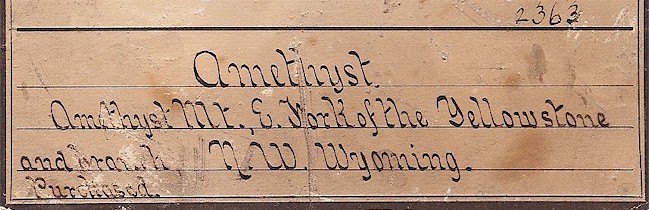 2363
Amethyst.
Amethyst Mt., E. Fork of the Yellowstone
and branch, N.W. Wyoming.
Purchased.